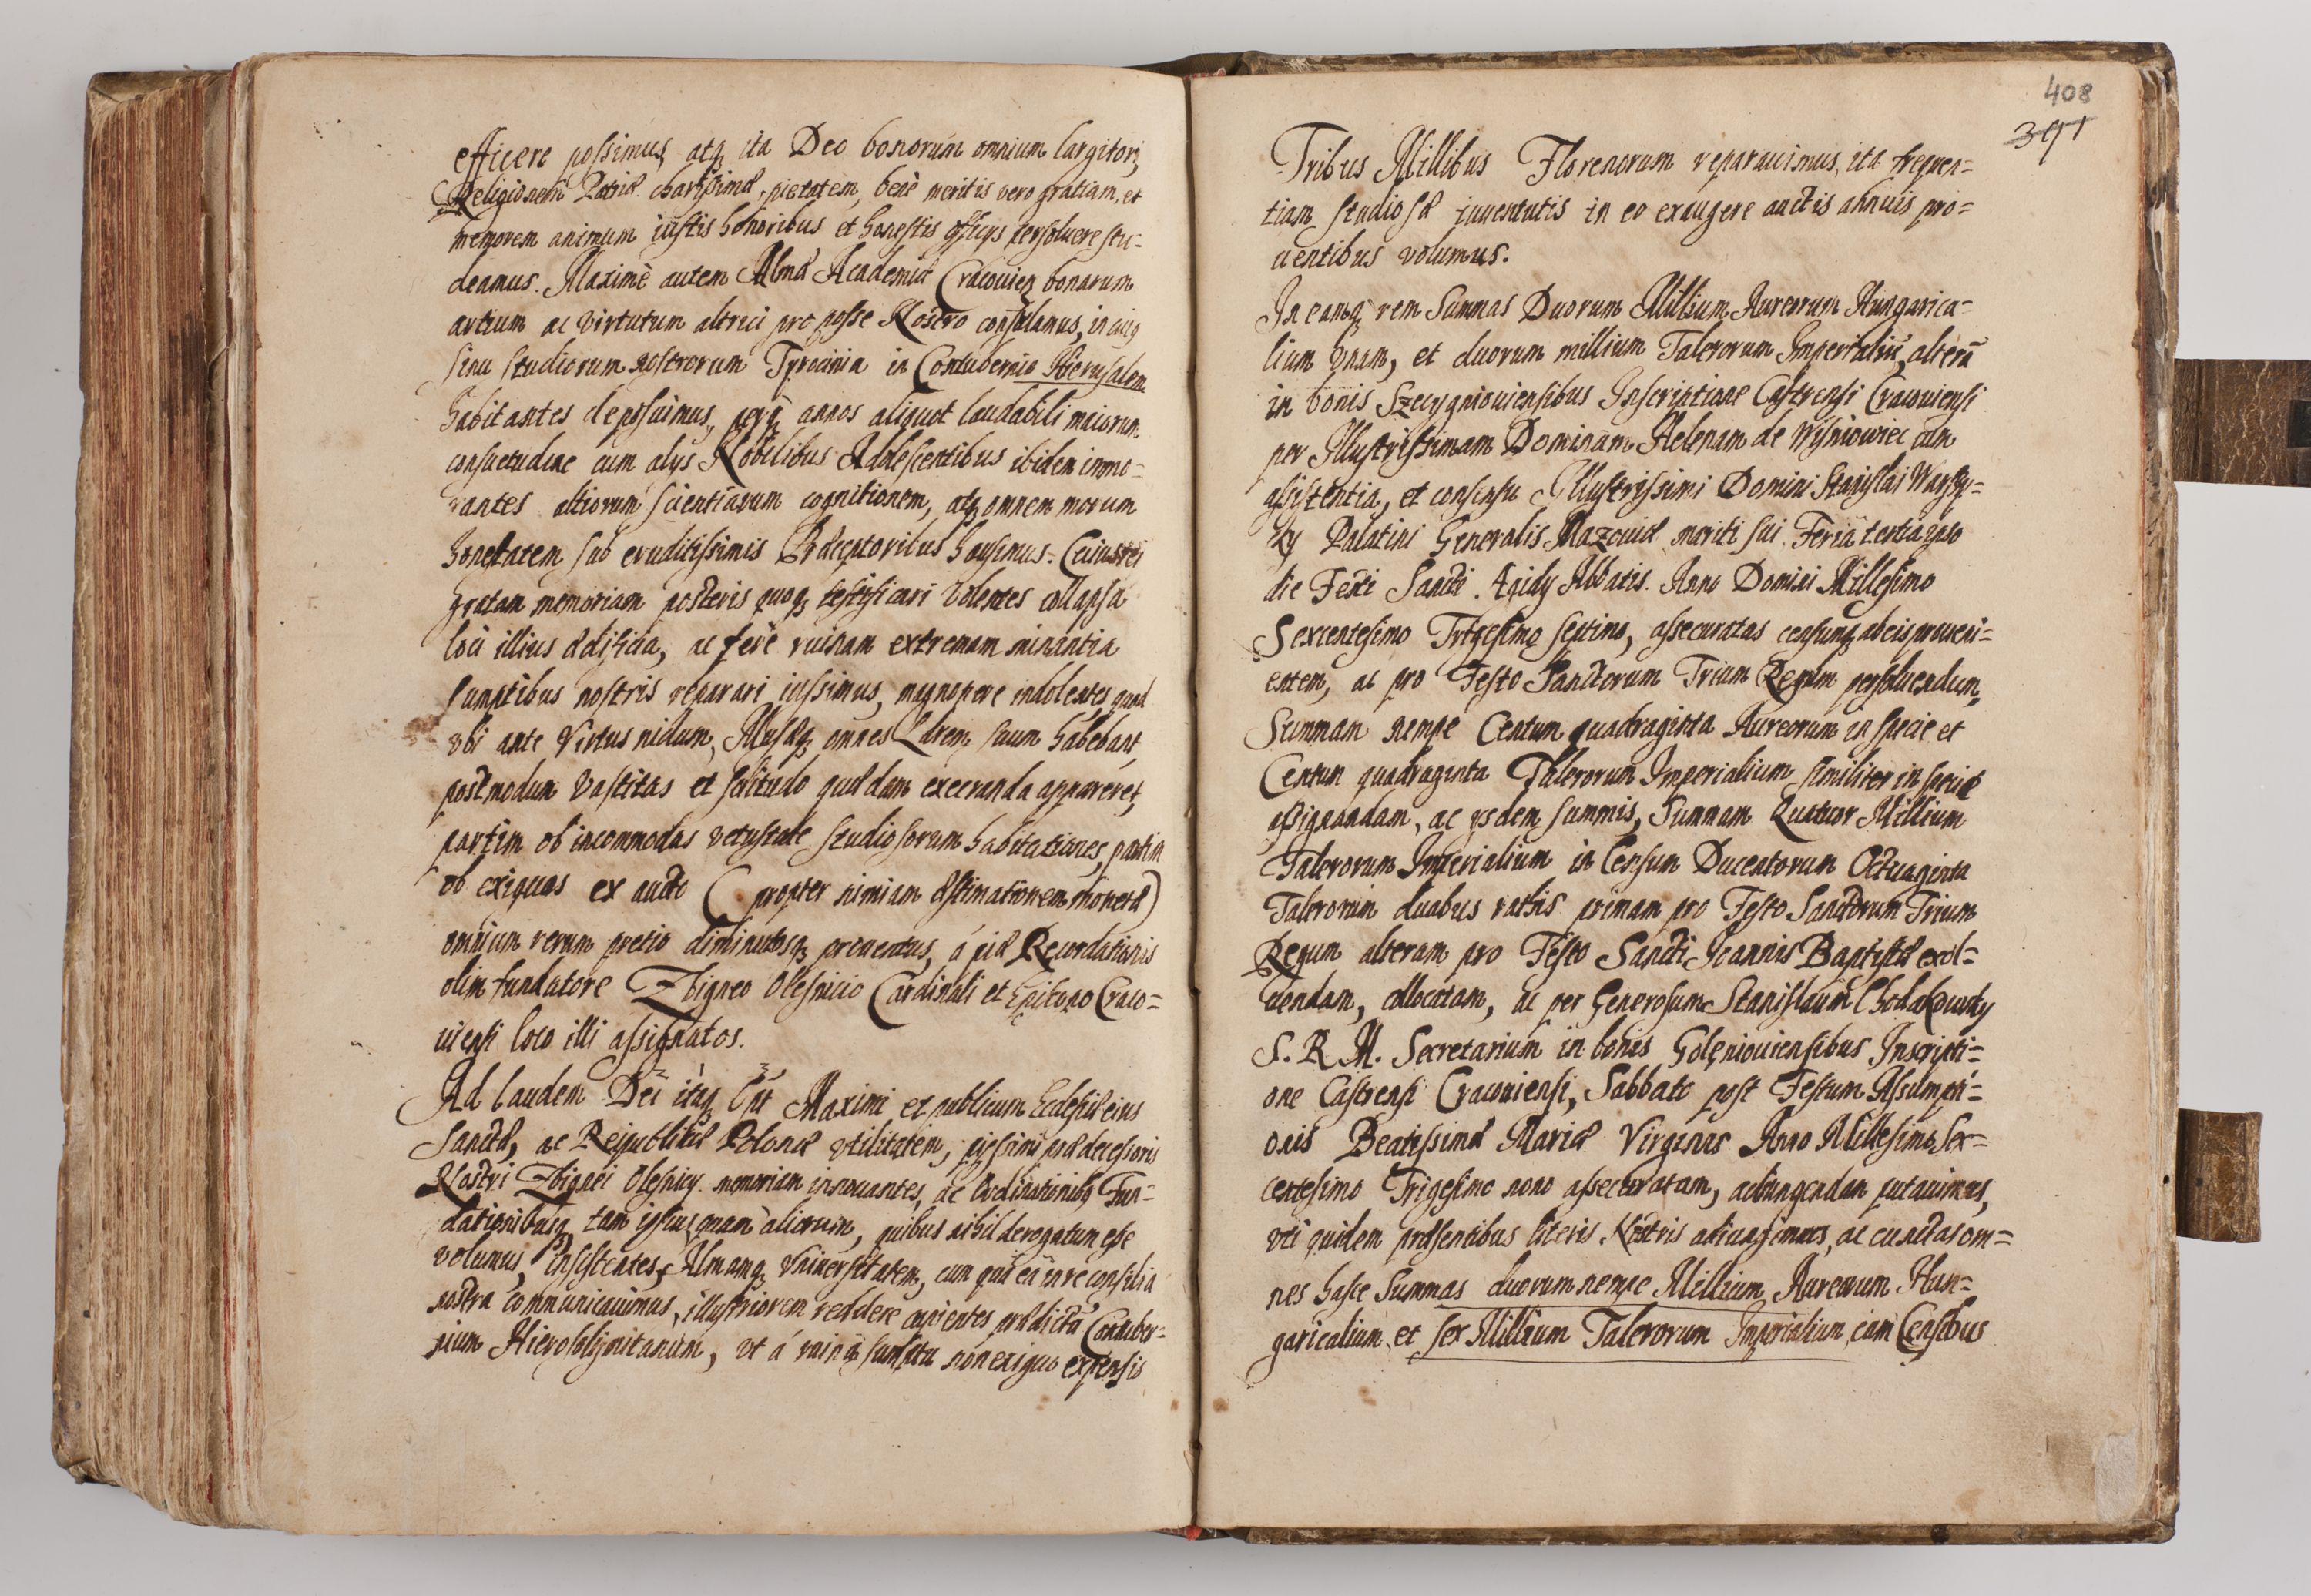 efficere possimus, atq; ita Deo bonorum omnium largitori,
Religionem Patriæ charissimæ, pietatem, benè meritis vero gratiam, et
memorem animum iustis honoribus et honestis officijs persoluere stu=
deamus. Maximè autem Almæ Academiæ Cracouien bonarum
artium ac virtutum altrici pro posse Nostro consulamus, in cuius
sinu studiorum nostrorum Tyrocinia in Contubernio Hierusalem
habitantes deposuimus, perq; annos aliquot laudabili maiorum
consuetudine cum alijs Nobilibus Adolescentibus ibidem immo=
rantes altiorum scientiarum cognitionem, atq; omnem morum
honestatem sub eruditissimis Præceptoribus hausimus. Cuius rei
gratam memoriam posteris quoq; testificari volentes collapsa
loci illius ædificia, ac ferè ruinam extremam minantia
sumptibus nostris reparari iussimus, magnopere indolentes, quod
vbi ante Virtus nidum, Musæq; omnes Larem suum habebant,
postmodum vastitas et solitudo quædam execranda appareret,
partim ob incommodas vetustate studiosorum habitationes, partim
ob exiguos ex aucto ( propter nimiam æstimationem monetæ )
omnium rerum pretio diminutosq; prouentus, á piæ Recordationis
olim fundatore Zbigneo Olesnicio Cardinali et Episcopo Craco=
uiensi loco illi assignatos.
Ad laudem Dei itaq; Opt Maximi et publicum Ecclesiæ eius
Sanctæ, ac Reipublicæ Polonæ vtilitatem, pijssimi prædecessoris
Nostri Zbignei Olesnicij memoriam innouantes, ac Ordinationibus, Fun=
dationibusq; tam ipsius quam aliorum, quibus nihil derogatum esse
volumus, insistentes, Almamq; Vniuersitatem, cum qua ea in re consilia
nostra communicauimus, illustriorem reddere cupientes prædictũ Contuber=
nium Hierosolymitanum, vt á ruina sumptu non exiguo expensis
408
391
Tribus Millibus Florenorum reparauimus, ita frequen=
tiam studiosæ iuuentutis in eo exaugere auctis annuis pro=
uentibus volumus.
In eamq; rem Summas Duorum Millium Aureorum Hungarica=
lium vnam, et duorum millium Talerorum Imperialiũ, alterã
in bonis Szczygniouiensibus Inscriptione Castrensi Cracouiensi
per Illustrissimam Dominam Helenam de Wisniowiec cum
assistentia, et consensu Illustrissimi Domini Stanislai Warszy=
cky Palatini Generalis Mazouiæ mariti sui. Feria tertia ipso
die Festi Sancti Ægidij Abbatis. Anno Domini Millesimo
Sexcentesimo Trigesimo septimo, assecuratas censumq; ab eis proueni=
entem, ac pro Festo Sanctorum Trium Regum persoluendum,
Summam nempe Centum quadraginta Aureorum in specie et
Centum quadraginta Talerorum Imperialium similiter in specie
assignandam, ac ijsdem summis, Summam Quatuor Millium
Talerorum Imperialium in Censum Ducentorum Octuaginta
Talerorum duabus rathis primam pro Festo Sanctorum Trium
Regum alteram pro Festo Sancti Joannis Baptistæ exol=
uendam, collocatam, ac per Generosum Stanislaum Chodakowsky
S. R. M. Secretarium in bonis Goleniouiensibus Inscripti=
one Castrensi Cracouiensi, Sabbato post Festum Assumpti=
onis Beatissimæ Mariæ Virginis Anno Millesimo Sex=
centesimo Trigesimo nono assecuratam, adiungendam putauimus,
vti quidem præsentibus literis Nostris adiungimus, ac cunctas om=
nes hasce Summas duorum nempe Millium Aureorum Hun=
garicalium et sex Millium Talerorum Imperialium cum Censibus